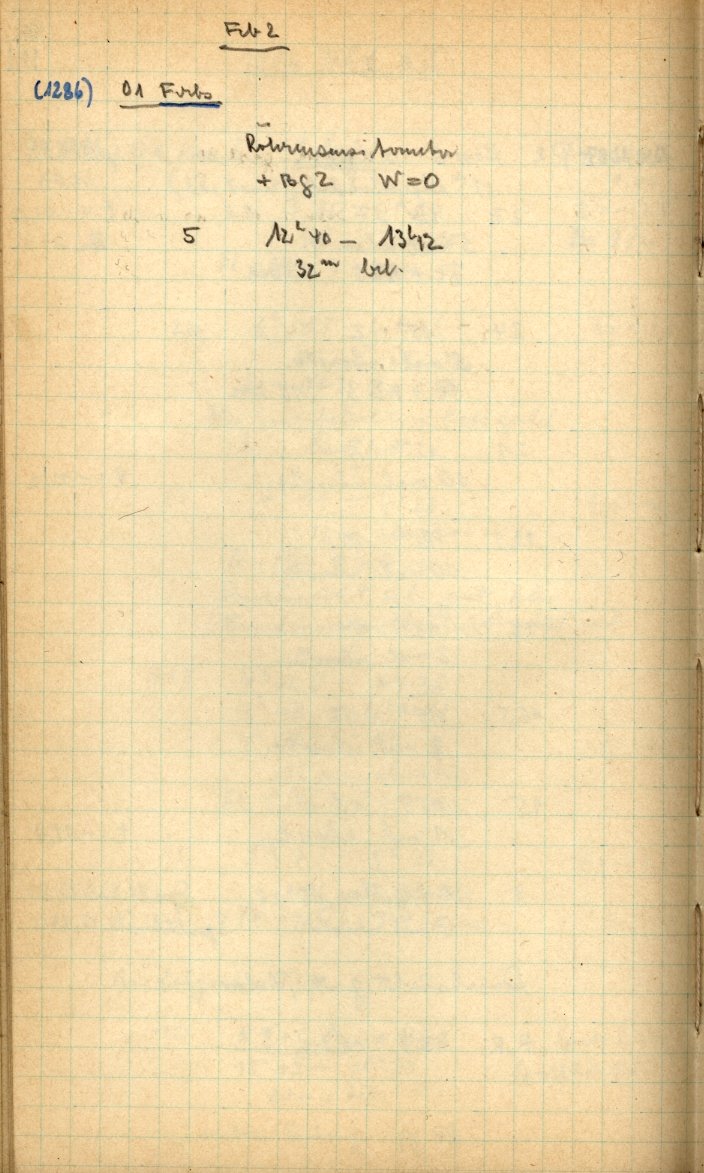 Feb 2
(1286) 01 Farbe
Röhrensensitometer
+ BG 2 W = 0
5 12h 40 – 13h 12
32m bel.